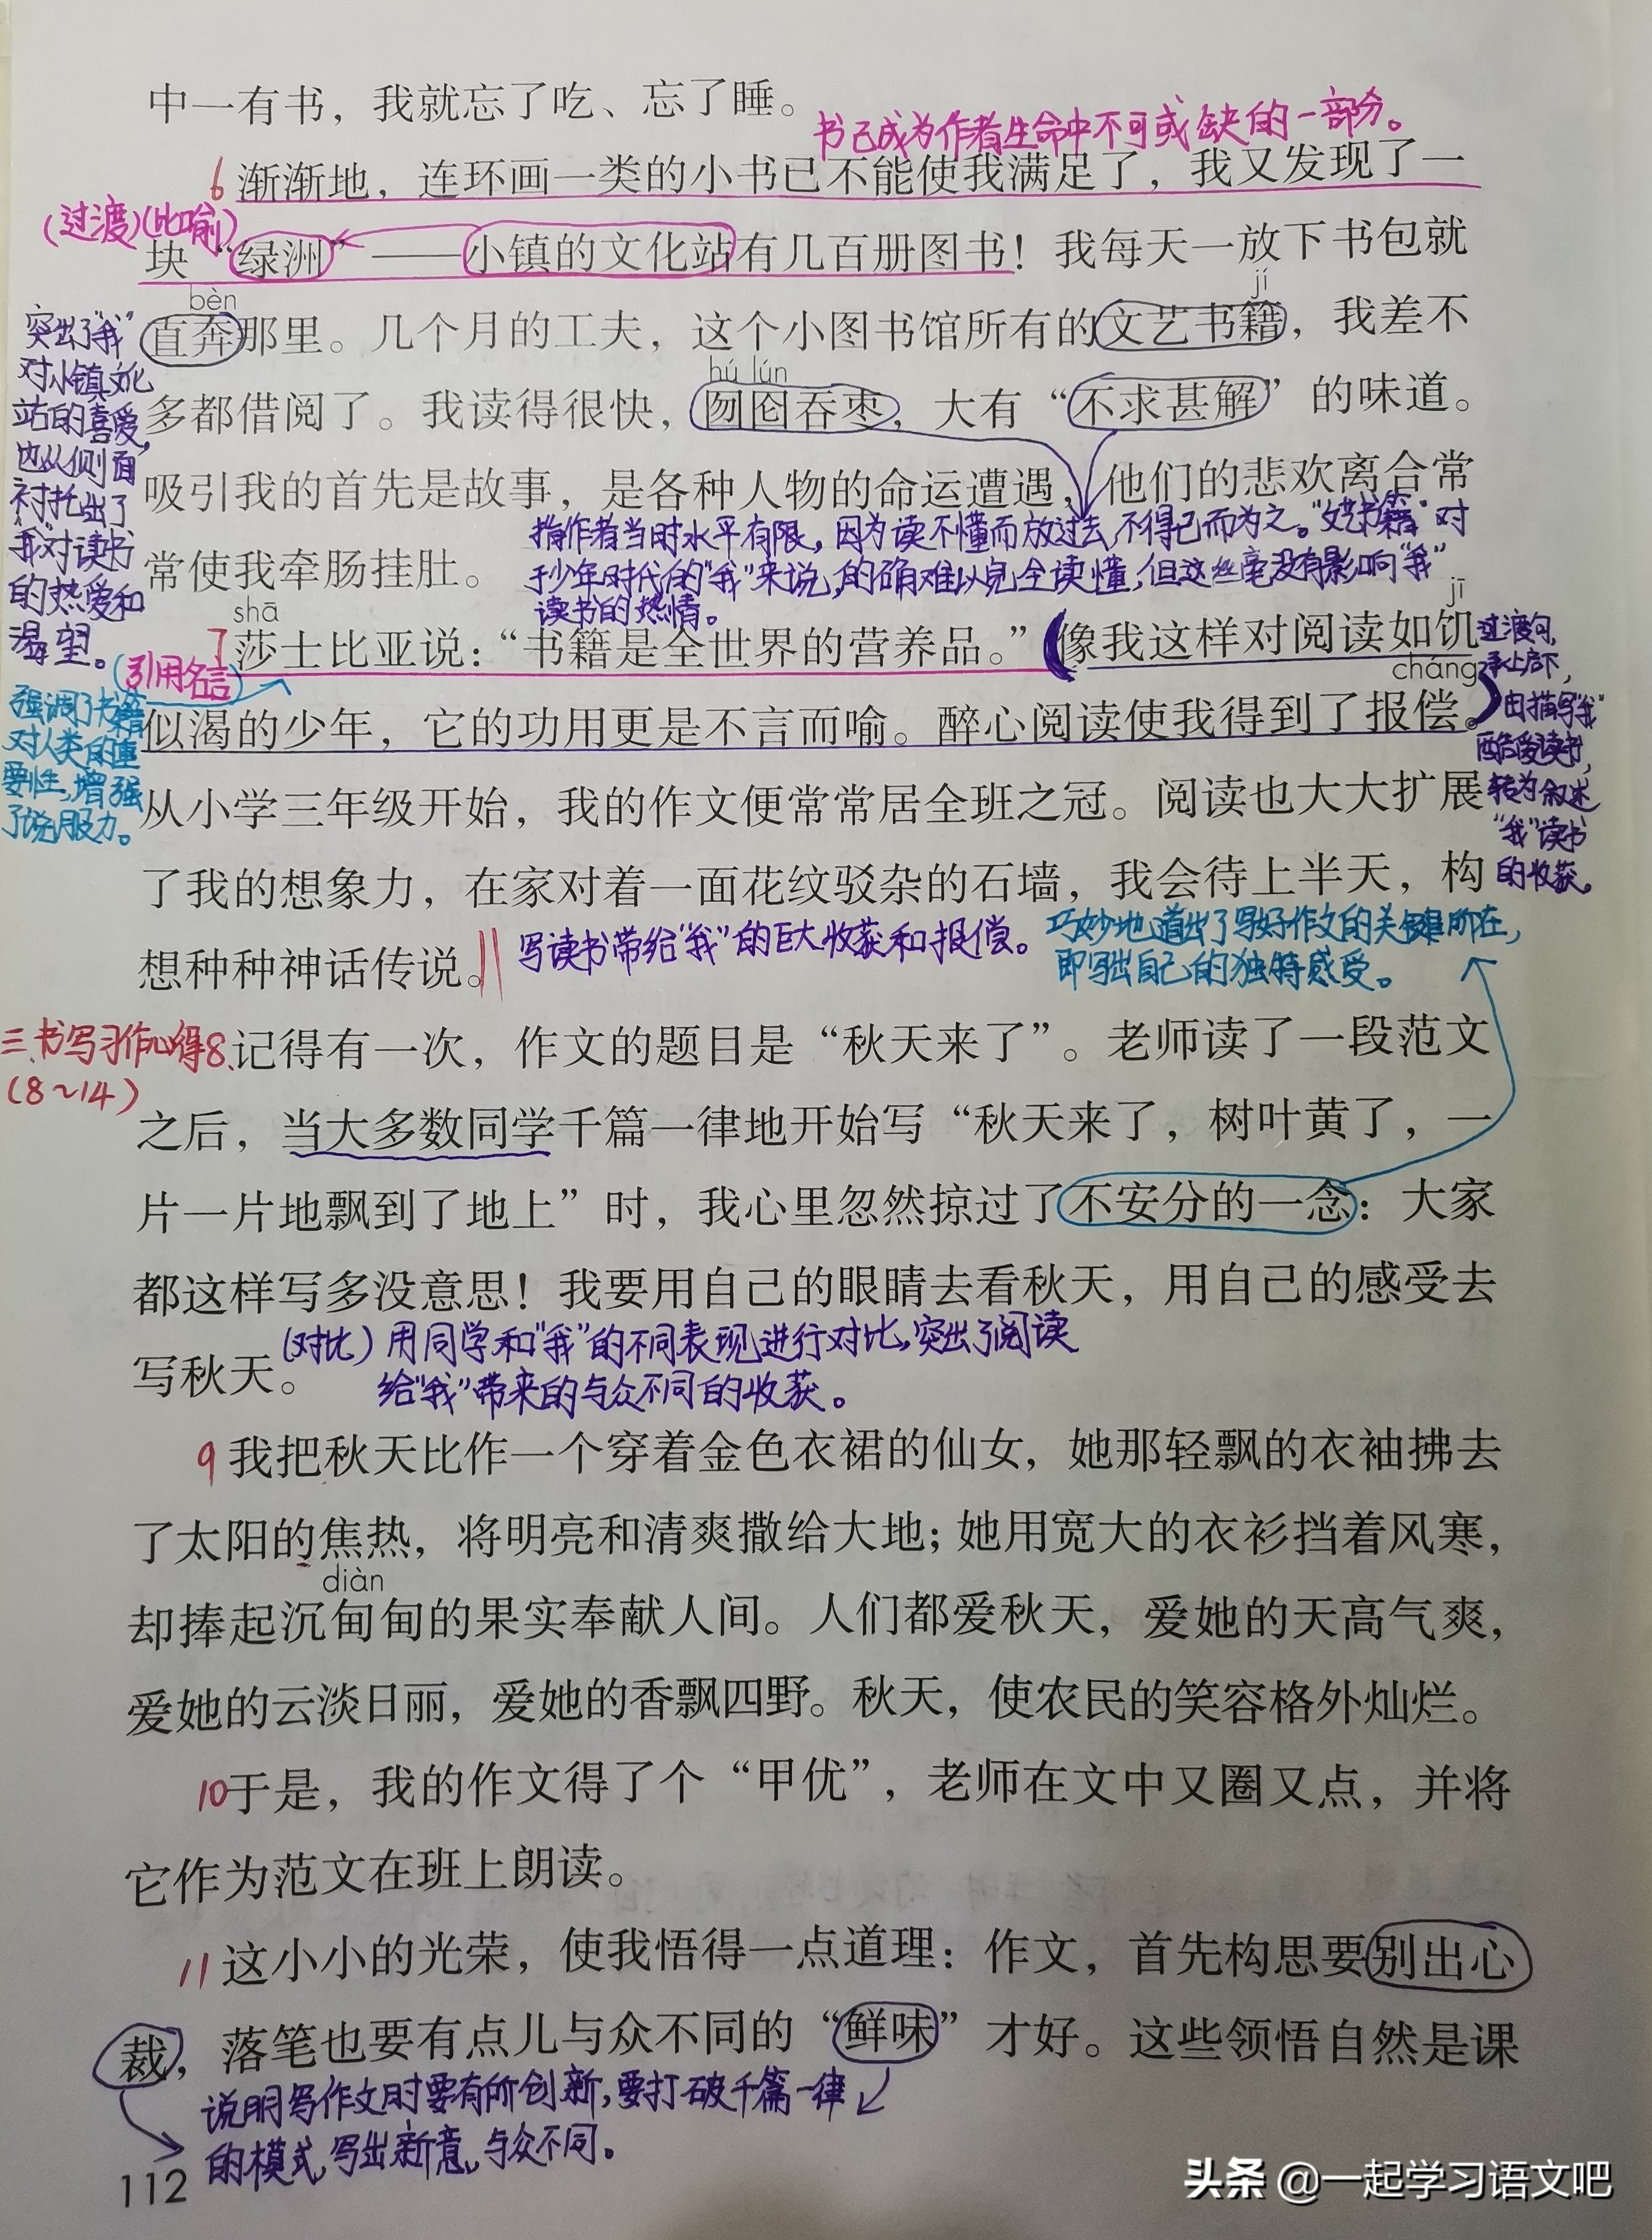 中一有书，我就忘了吃、忘了睡。
书已成为作者生命中不可或缺的一部分。
6 渐渐地，连环画一类的小书已不能使我满足了，我又发现了一
(过渡)(比喻)
块“绿洲”——小镇的文化站有几百册图书！我每天一放下书包就
bèn
jí
直奔那里。几个月的工夫，这个小图书馆所有的文艺书籍，我差不
突出了“我”
对小镇文化
站的喜爱，
也从侧面
衬托出了
“我”对读书
的热爱和
渴望。
hú lún
多都借阅了。我读得很快，囫囵吞枣，大有“不求甚解”的味道。
吸引我的首先是故事，是各种人物的命运遭遇，他们的悲欢离合常
指作者当时水平有限，因为读不懂而放过去，不得已而为之。“文艺书籍”对
常使我牵肠挂肚。
于少年时代的“我”来说，的确难以完全读懂，但这丝毫没有影响“我”
读书的热情。
shā
jī
7 莎士比亚说：“书籍是全世界的营养品。”像我这样对阅读如饥
(引用名言)
强调了书籍
对人类的重
要性，增强
了说服力。
cháng
似渴的少年，它的功用更是不言而喻。醉心阅读使我得到了报偿。
过渡句，
承上启下，
由描写“我”
酷爱读书，
转为叙述
“我”读书
的收获。
从小学三年级开始，我的作文便常常居全班之冠。阅读也大大扩展
了我的想象力，在家对着一面花纹驳杂的石墙，我会待上半天，构
想种种神话传说。
写读书带给“我”的巨大收获和报偿。
巧妙地道出了写好作文的关键所在，
即写出自己的独特感受。
三、书写习作心得
(8~14)
8、记得有一次，作文的题目是“秋天来了”。老师读了一段范文
之后，当大多数同学千篇一律地开始写“秋天来了，树叶黄了，一
片一片地飘到了地上”时，我心里忽然掠过了不安分的一念：大家
都这样写多没意思！我要用自己的眼睛去看秋天，用自己的感受去
写秋天。
(对比) 用同学和“我”的不同表现进行对比，突出了阅读
给“我”带来的与众不同的收获。
9 我把秋天比作一个穿着金色衣裙的仙女，她那轻飘的衣袖拂去
了太阳的焦热，将明亮和清爽撒给大地；她用宽大的衣衫挡着风寒，
diàn
却捧起沉甸甸的果实奉献人间。人们都爱秋天，爱她的天高气爽，
爱她的云淡日丽，爱她的香飘四野。秋天，使农民的笑容格外灿烂。
10 于是，我的作文得了个“甲优”，老师在文中又圈又点，并将
它作为范文在班上朗读。
11 这小小的光荣，使我悟得一点道理：作文，首先构思要别出心
裁，落笔也要有点儿与众不同的“鲜味”才好。这些领悟自然是课
说明写作文时要有所创新，要打破千篇一律
的模式，写出新意，与众不同。
112
头条 @一起学习语文吧